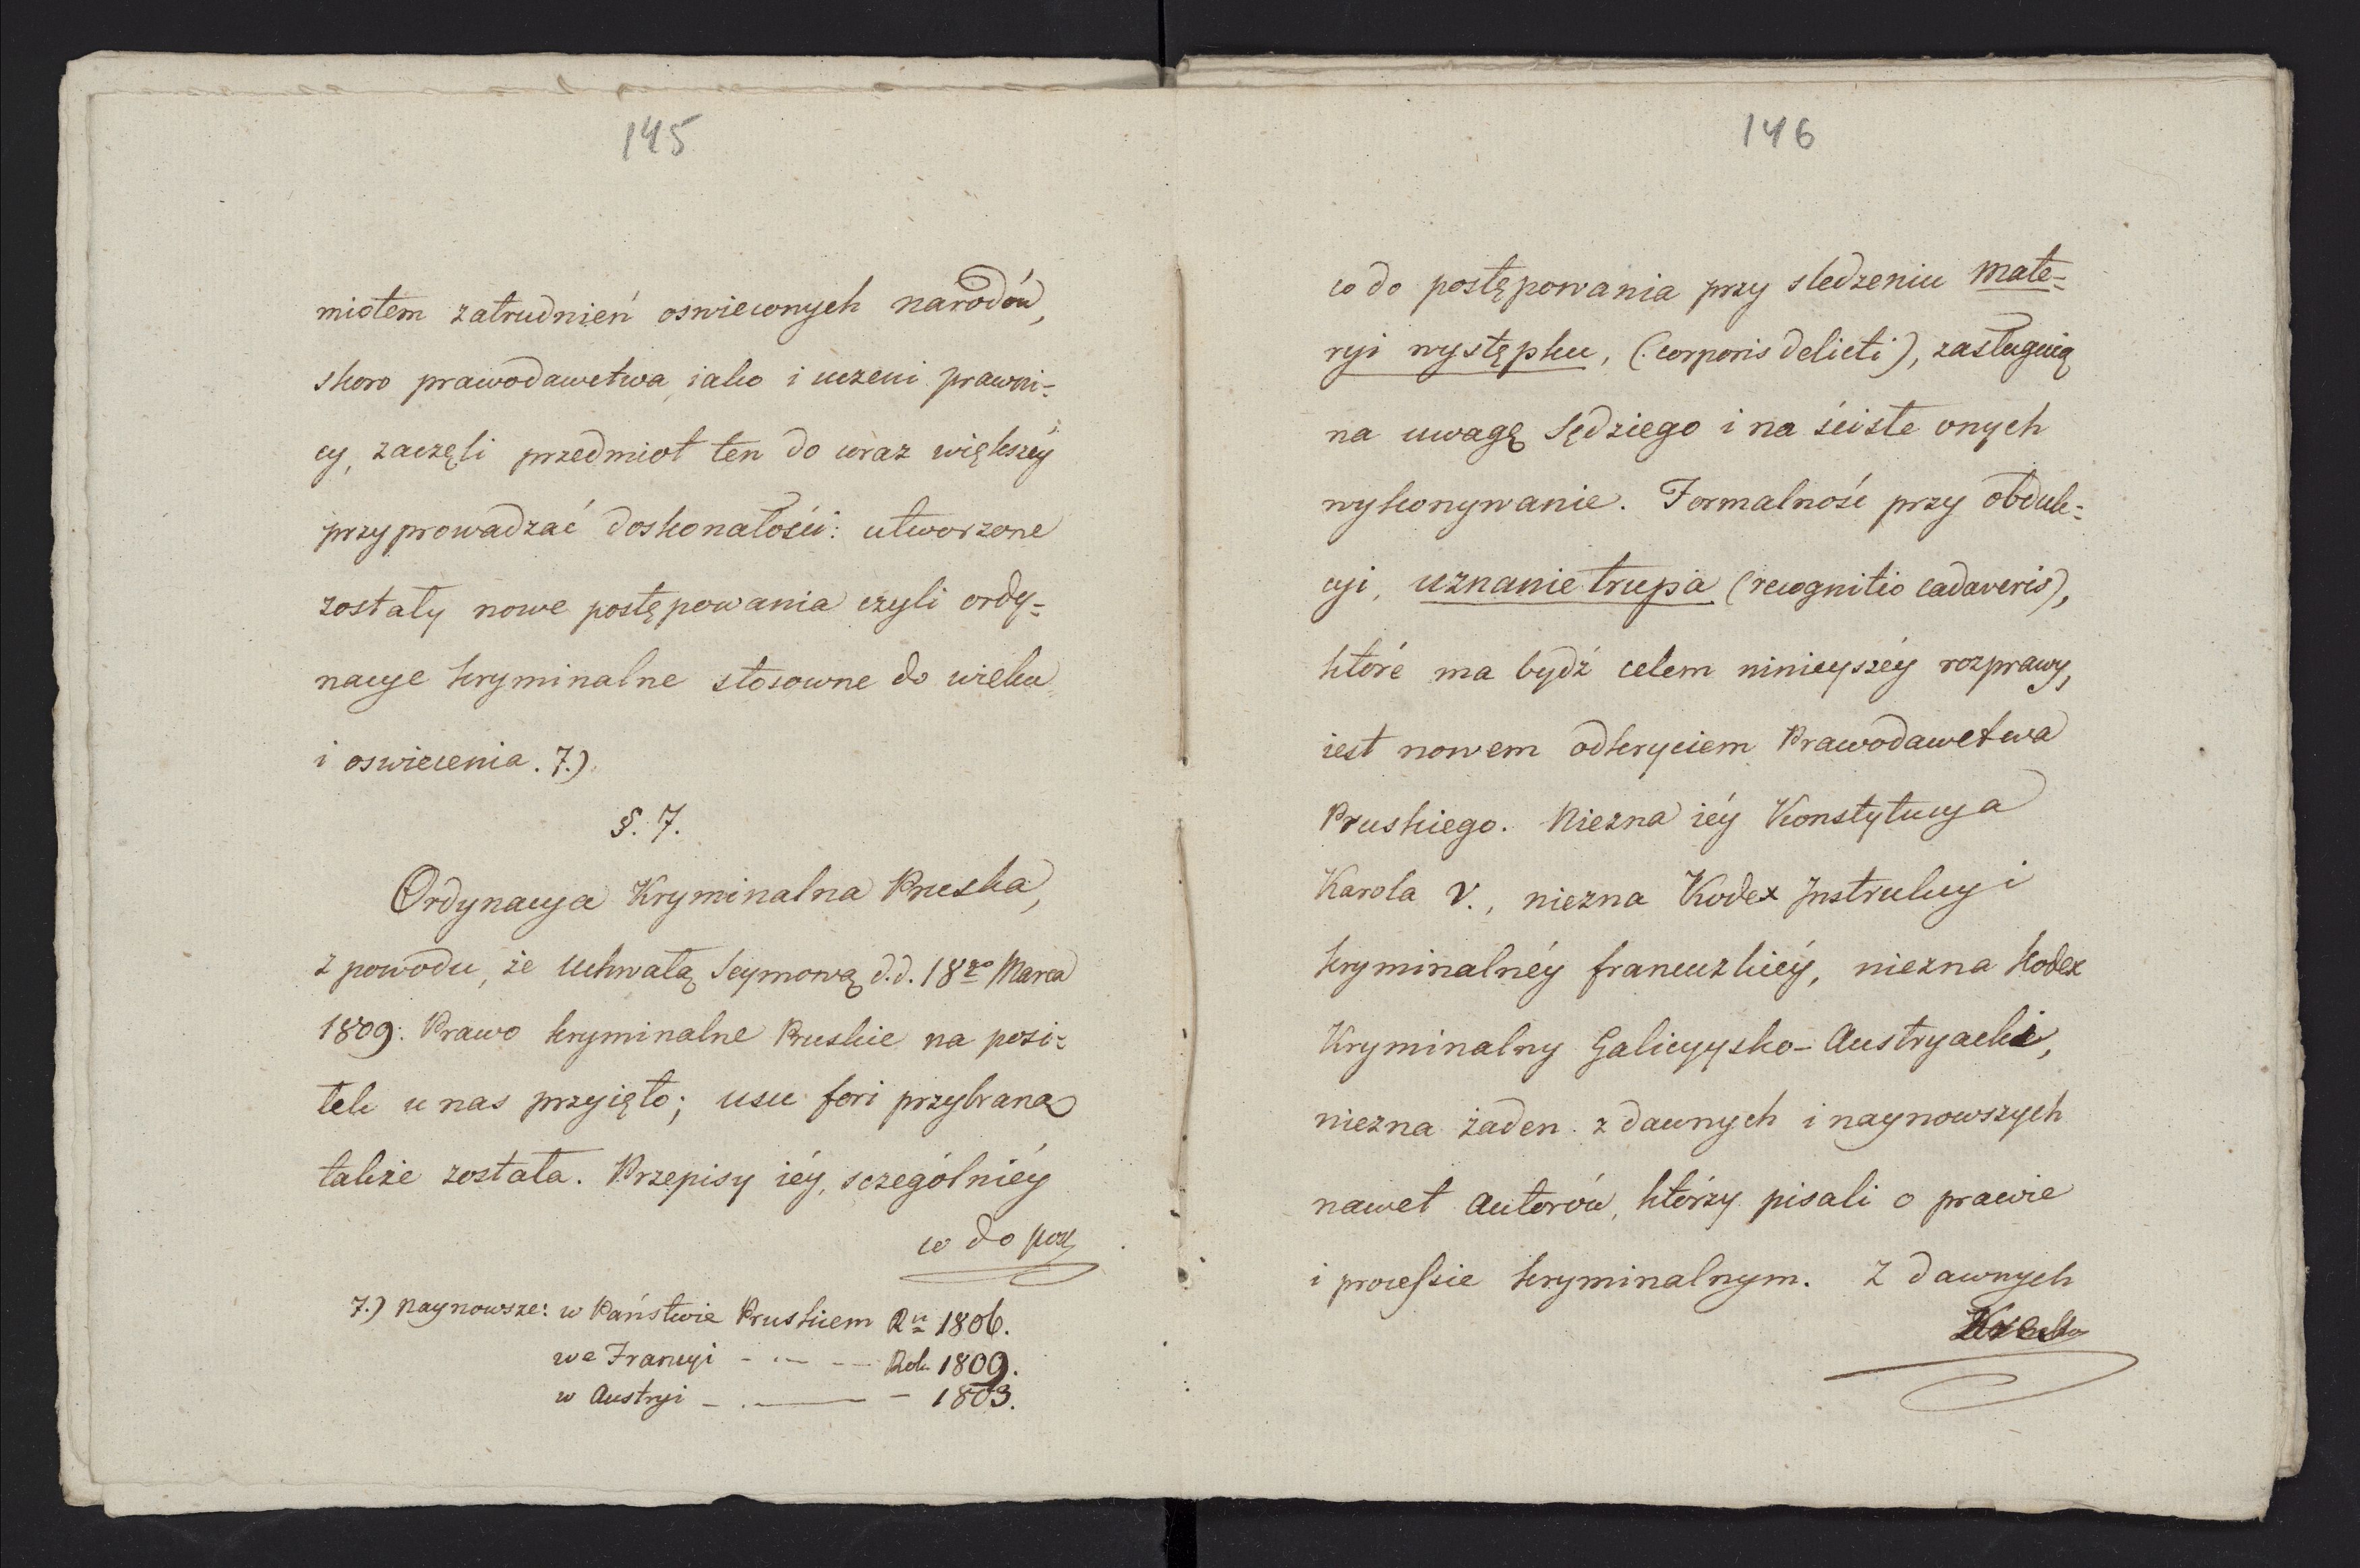 145
miotem zatrudnień oswieconych narodów,
skoro prawodawctwa, iako i uczeni prawni=
cy, zaczęli przedmiot ten do coraz większéy
przyprowadzać doskonałości: utworzone
zostały nowe postępowania czyli ordy=
nacye kryminalne stosowne do wieku
i oswiecenia. 7.)
§. 7.
Ordynacya Kryminalna Pruska,
z powodu, że Uchwałą Seymową d.d. 18go Marca
1809: Prawo kryminalne Pruskie na posi=
tek u nas przyięto; usu fori przybrana
także została. Przepisy iéy, sczególniéy
co do post
7.) Naynowsze: w Państwie Pruskiem Ru 1806.
we Francyi - - - - Rok 1809.
w Austryi - - - 1803.
146
co do postępowania przy sledzeniu mate=
ryi występku, (corporis delicti), zasługuią
na uwagę Sędziego i na ściste onych
wykonywanie. Formalność przy obduk=
cyi, uznanie trupa (recognitio cadaveris),
któré ma bydź celem ninieyszéy rozprawy,
iest nowem odkryciem Prawodawctwa
Pruskiego. Niezna iéy Konstytucya
Karola V., niezna Kodex Instrukcyi
kryminalnéy francuzkiéy, niezna Kodex
Kryminalny Galicyysko-Austryacki,
niezna żaden z dawnych i naynowszych
nawet Autorów, którzy pisali o prawie
i processie kryminalnym. Z dawnych